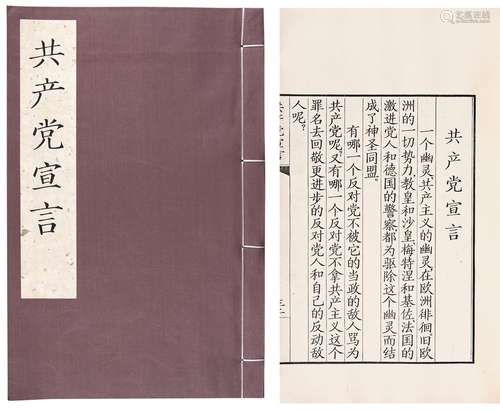 共产党宣言
共产党宣言
一个幽灵，共产主义的幽灵，在欧洲徘徊。旧欧
洲的一切势力，教皇和沙皇、梅特涅和基佐、法国的
激进党人和德国的警察，都为驱除这个幽灵而结
成了神圣同盟。
有哪一个反对党不被它的当政的敌人骂为
共产党呢？又有哪一个反对党不拿共产主义这个
罪名去回敬更进步的反对党人和自己的反动敌
人呢？
共产党宣言